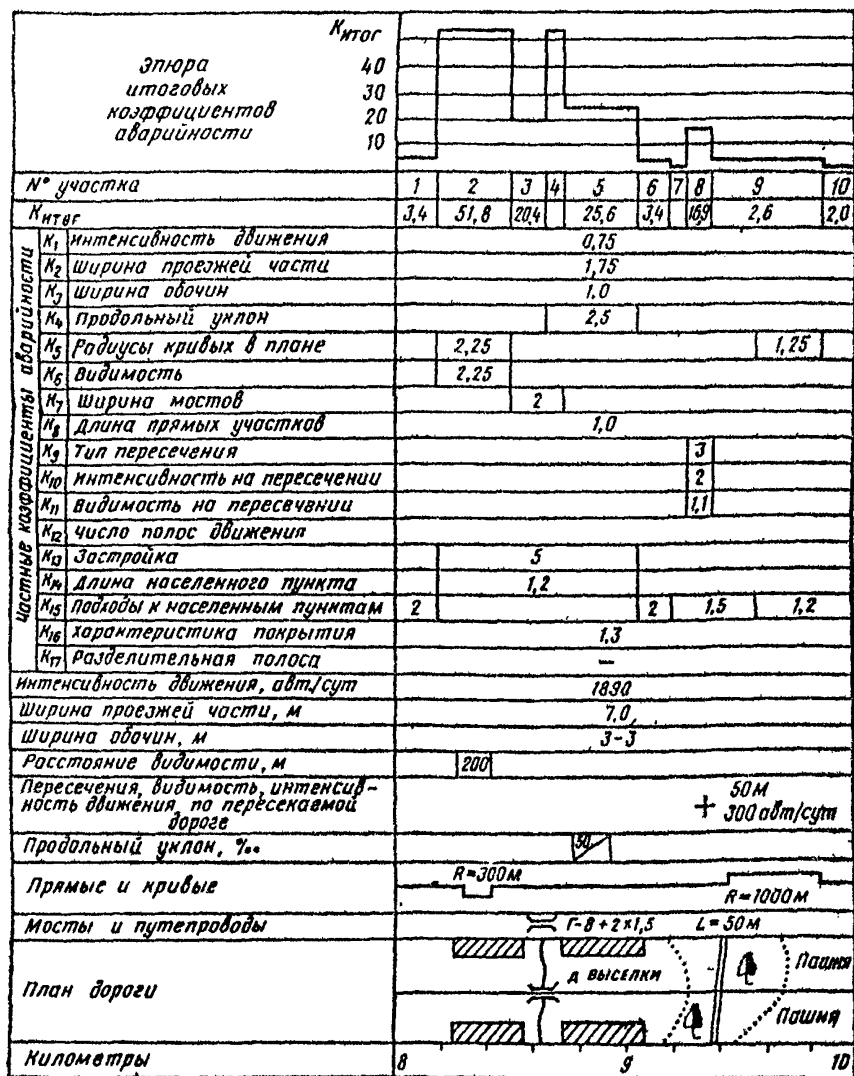 Эпюра
итоговых
коэффициентов
аварийности
Kитог
40
30
20
10
N° участка 1 2 3 4 5 6 7 8 9 10
Kитог 3,4 51,8 20,4 25,6 3,4 16,9 2,6 2,0
Частные коэффициенты аварийности
K1 Интенсивность движения 0,75
K2 Ширина проезжей части 1,75
K3 Ширина обочин 1,0
K4 Продольный уклон 2,5
K5 Радиусы кривых в плане 2,25 1,25
K6 Видимость 2,25
K7 Ширина мостов 2
K8 Длина прямых участков 1,0
K9 Тип пересечения 3
K10 Интенсивность на пересечении 2
K11 Видимость на пересечении 1,1
K12 Число полос движения
K13 Застройка 5
K14 Длина населенного пункта 1,2
K15 Подходы к населенным пунктам 2 2 1,5 1,2
K16 Характеристика покрытия 1,3
K17 Разделительная полоса —
Интенсивность движения, авт/сут 1890
Ширина проезжей части, м 7,0
Ширина обочин, м 3-3
Расстояние видимости, м 200
Пересечения, видимость, интенсив-
ность движения, по пересекаемой
дороге
50м
300 авт/сут
Продольный уклон, ‰ 50
Прямые и кривые R=300м R=1000м
Мосты и путепроводы Г-8+2×1,5 L=50м
План дороги
д Выселки
Пашня
Пашня
Километры 8 9 10